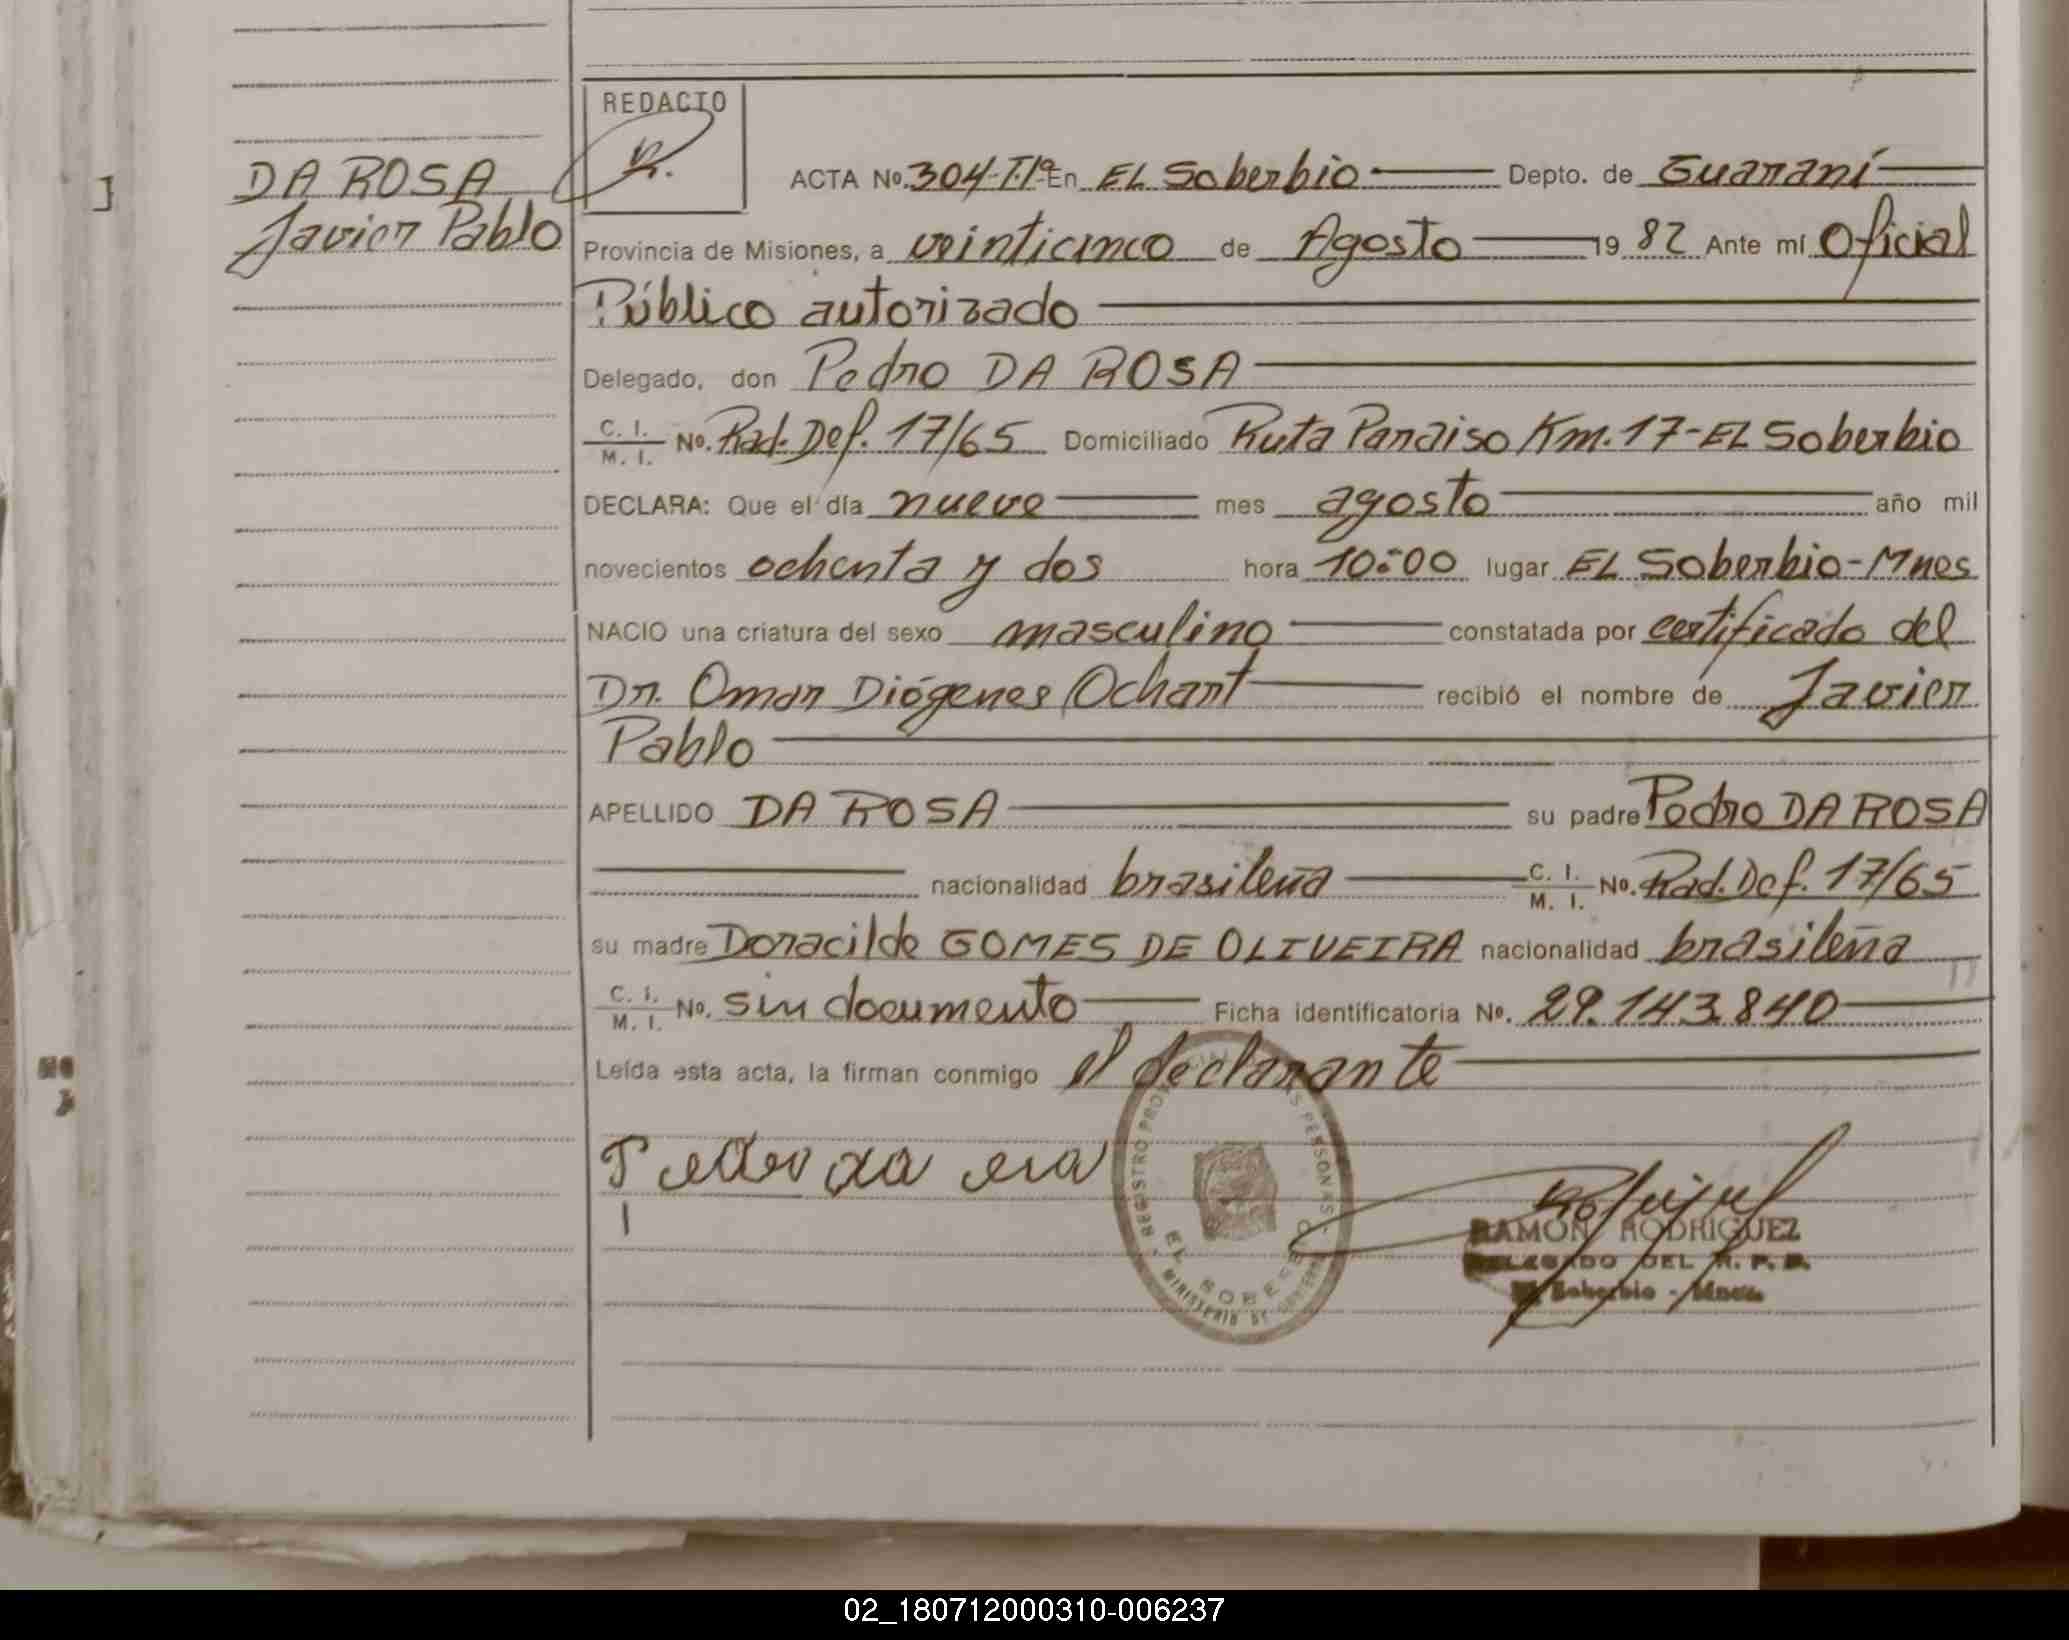 REDACTO
DA ROSA
Javier Pablo
ACTA No. 304-T.1º En EL Soberbio Depto. de Guaraní
Provincia de Misiones, a veinticinco de Agosto 19 82 Ante mí Oficial
Público autorizado
Delegado, don Pedro DA ROSA
C. I. M. I. No. Rad. Def. 17/65 Domiciliado Ruta Paraiso Km. 17-EL Soberbio
DECLARA: Que el día nueve mes agosto año mil
novecientos ochenta y dos hora 10:00 lugar EL Soberbio-Mnes
NACIO una criatura del sexo masculino constatada por certificado del
Dr. Omar Diógenes Ochart recibió el nombre de Javier
Pablo
APELLIDO DA ROSA su padre Pedro DA ROSA
nacionalidad brasileña C. I. M. I. No. Rad. Def. 17/65
su madre Doracilde GOMES DE OLIVEIRA nacionalidad brasileña
C. I. M. I. No. sin documento Ficha identificatoria No. 29.143.840
Leída esta acta, la firman conmigo el declarante
REGISTRO PROVINCIAL DE LAS PERSONAS
EL SOBERBIO
MINISTERIO DE GOBIERNO
RAMON RODRIGUEZ
DELEGADO DEL R. P. P.
El Soberbio - Mnes
02_180712000310-006237